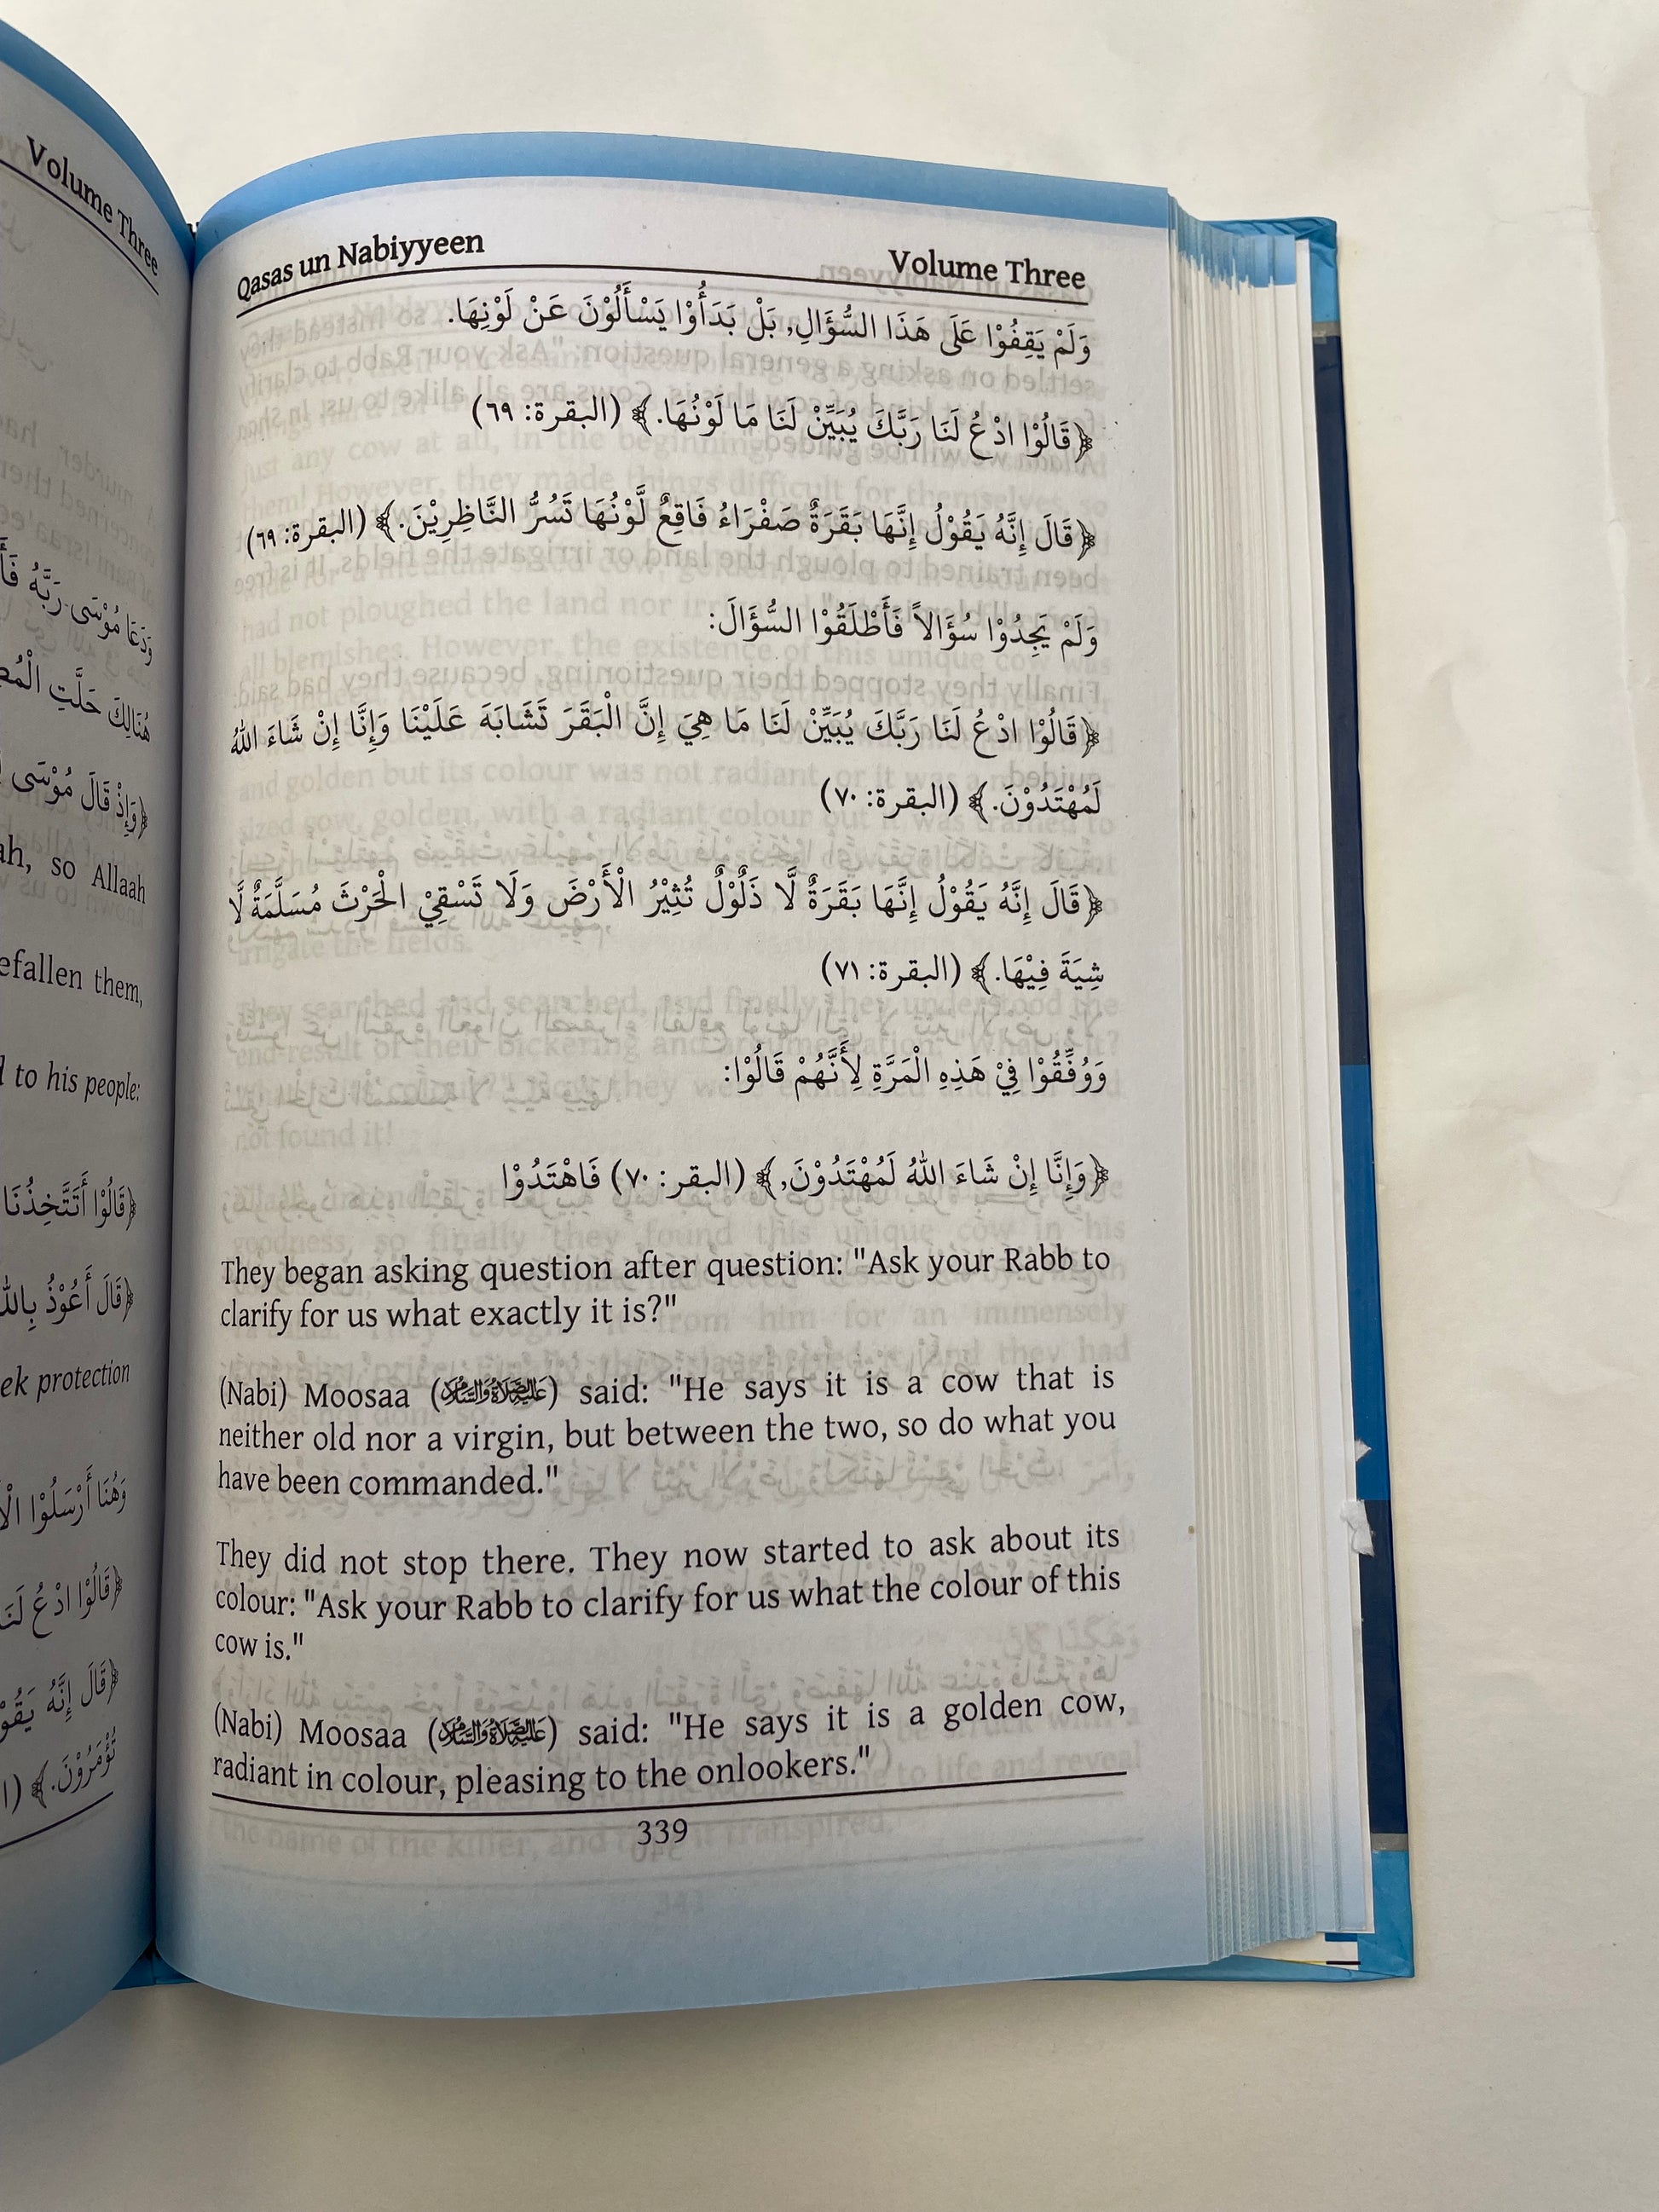 Volume Three
وَدَعَا مُوْسَى رَبَّهُ
هُنَالِكَ حَلَّتِ
﴿وَإِذْ قَالَ مُوْسَى
so Allaah
efallen them,
to his people:
﴿قَالُوْا أَتَتَّخِذُنَا
﴿قَالَ أَعُوْذُ بِاللهِ
ek protection
وَهُنَا أَرْسَلُوْا
﴿قَالُوْا ادْعُ
﴿قَالَ إِنَّهُ
تُؤْمَرُوْنَ.﴾
Qasas un Nabiyyeen Volume Three
وَلَمْ يَقِفُوْا عَلَى هَذَا السُّؤَالِ, بَلْ بَدَأُوْا يَسْأَلُوْنَ عَنْ لَوْنِهَا.
﴿قَالُوْا ادْعُ لَنَا رَبَّكَ يُبَيِّنْ لَنَا مَا لَوْنُهَا.﴾ (البقرة: ٦٩)
﴿قَالَ إِنَّهُ يَقُوْلُ إِنَّهَا بَقَرَةٌ صَفْرَاءُ فَاقِعٌ لَّوْنُهَا تَسُرُّ النَّاظِرِيْنَ.﴾ (البقرة: ٦٩)
وَلَمْ يَجِدُوْا سُؤَالاً فَأَطْلَقُوْا السُّؤَالَ:
﴿قَالُوْا ادْعُ لَنَا رَبَّكَ يُبَيِّنْ لَنَا مَا هِيَ إِنَّ الْبَقَرَ تَشَابَهَ عَلَيْنَا وَإِنَّا إِنْ شَاءَ اللهُ
لَمُهْتَدُوْنَ.﴾ (البقرة: ٧٠)
﴿قَالَ إِنَّهُ يَقُوْلُ إِنَّهَا بَقَرَةٌ لَّا ذَلُوْلٌ تُثِيْرُ الْأَرْضَ وَلَا تَسْقِيْ الْحَرْثَ مُسَلَّمَةٌ لَّا
شِيَةَ فِيْهَا.﴾ (البقرة: ٧١)
وَوُفِّقُوْا فِيْ هَذِهِ الْمَرَّةِ لِأَنَّهُمْ قَالُوْا:
﴿وَإِنَّا إِنْ شَاءَ اللهُ لَمُهْتَدُوْنَ,﴾ (البقر: ٧٠) فَاهْتَدُوْا
They began asking question after question: "Ask your Rabb to
clarify for us what exactly it is?"
(Nabi) Moosaa (عَلَيْهِ الصَّلَاةُ وَالسَّلَام) said: "He says it is a cow that is
neither old nor a virgin, but between the two, so do what you
have been commanded."
They did not stop there. They now started to ask about its
colour: "Ask your Rabb to clarify for us what the colour of this
cow is."
(Nabi) Moosaa (عَلَيْهِ الصَّلَاةُ وَالسَّلَام) said: "He says it is a golden cow,
radiant in colour, pleasing to the onlookers."
339